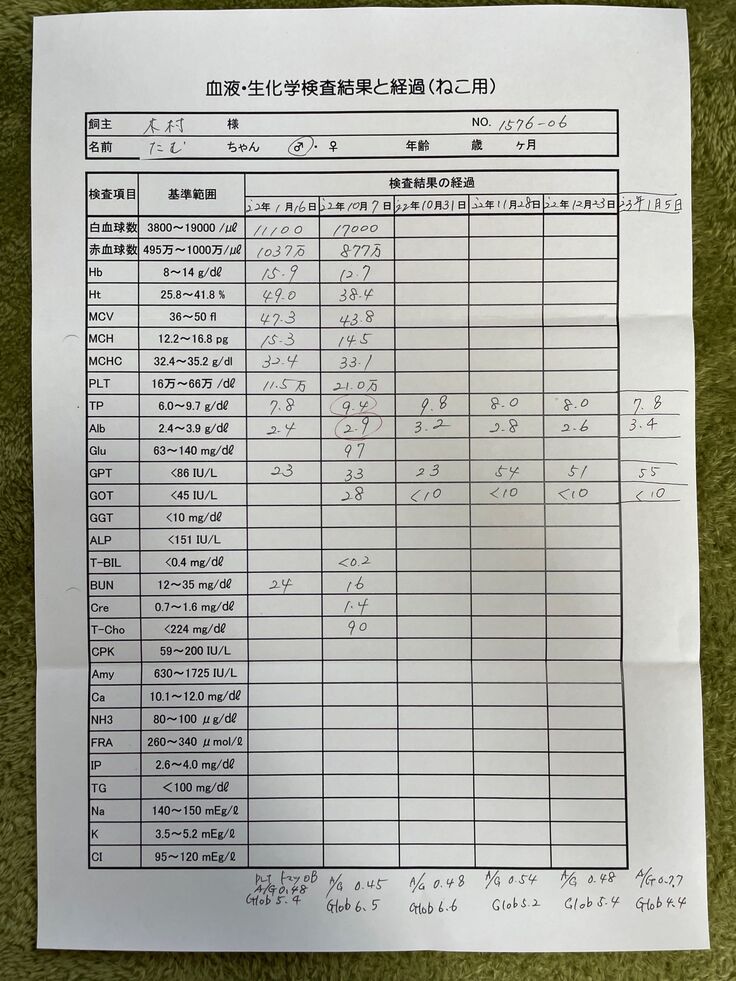 血液・生化学検査結果と経過(ねこ用)
飼主 木村 様 NO. 1576-06
名前 たむ ちゃん ♂・♀ 年齢 歳 ヶ月
検査項目 基準範囲 検査結果の経過
22年1月16日 22年10月7日 22年10月31日 22年11月28日 22年12月23日 23年1月5日
白血球数 3800～19000 /μl 11100 17000
赤血球数 495万～1000万/μl 1037万 877万
Hb 8～14 g/dℓ 15.9 12.7
Ht 25.8～41.8 % 49.0 38.4
MCV 36～50 fl 47.3 43.8
MCH 12.2～16.8 pg 15.3 14.5
MCHC 32.4～35.2 g/dl 32.4 33.1
PLT 16万～66万 /dℓ 11.5万 21.0万
TP 6.0～9.7 g/dℓ 7.8 9.4 9.8 8.0 8.0 7.8
Alb 2.4～3.9 g/dℓ 2.4 2.9 3.2 2.8 2.6 3.4
Glu 63～140 mg/dℓ 97
GPT <86 IU/L 23 33 23 54 51 55
GOT <45 IU/L 28 <10 <10 <10 <10
GGT <10 mg/dℓ
ALP <151 IU/L
T-BIL <0.4 mg/dℓ <0.2
BUN 12～35 mg/dℓ 24 16
Cre 0.7～1.6 mg/dℓ 1.4
T-Cho <224 mg/dℓ 90
CPK 59～200 IU/L
Amy 630～1725 IU/L
Ca 10.1～12.0 mg/dℓ
NH3 80～100 μg/dℓ
FRA 260～340 μmol/ℓ
IP 2.6～4.0 mg/dℓ
TG <100 mg/dℓ
Na 140～150 mEg/ℓ
K 3.5～5.2 mEg/ℓ
Cl 95～120 mEg/ℓ
PLT
A/G 0.48 A/G 0.45 A/G 0.48 A/G 0.54 A/G 0.48 A/G 0.77
Glob 5.4 Glob 6.5 Glob 6.6 Glob 5.2 Glob 5.4 Glob 4.4